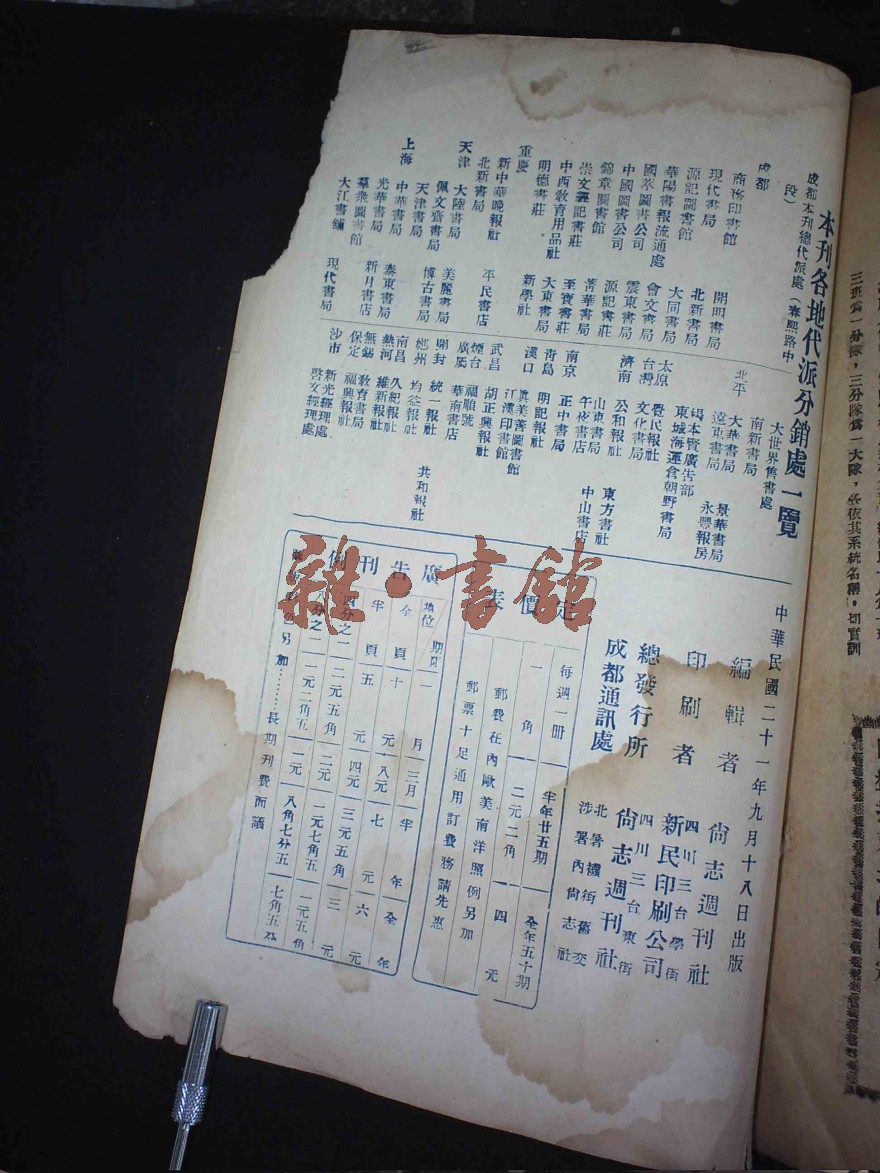 本刊各地代派分銷處一覽
成都本刊總代派處（春熙路中段）
成都
商務印書館
開明書局
現代書局
北新書局
源記圖書館
大同書局
華陽書報流通處
會文書局
國萃圖書公司
震東書局
中國圖書公司
源記書莊
錦章圖書館
菁華書局
崇文書記書莊
至寶書莊
中西敎育用品社
大東書局
明德書莊
新學社
重慶
新中華晚報社
北新書局
平民書店
天津
大陸書局
佩文齋書局
美麗書局
天津書局
博古書局
上海
中華書局
泰東書局
光華書局
新月書店
羣衆圖書館
現代書局
大江書鋪
大世界售書處
南新書局
北平
大華書局
景華書局
遼東書局
永豐報房
東城海運倉朝野書局
太原
覺民報社
台灣
文化書局
濟南
公和報社
山東書局
東方書社
午夜書店
中山書店
南京
正中書局
青島
明記報社
漢口
眞美善圖書館
江漢印書館
武昌
胡正興報社
煙台
福順號
廣州
華南書店
開封
統一報社
共和報社
鄭州
均益報社
南昌
久紀報社
熱河
維新報社
無錫
敎育書局
保定
福興報社
沙市
新光經理處
啓文經理處
中華民國二十一年九月十八日出版
編輯者
尚志週刊社
四川三台學街
印刷者
新民印刷公司
四川三台東街
總發行所
尚志週刊社
成都通訊處
北暑襪街舊交涉署內尚志社
定價表
每週一冊
半年廿五期
全年五十期
一角
二元二角
四元
郵費在內歐美南洋照例另加
郵票十足通用訂費務請先惠
廣告刊例
地位
期間
一月
三月
半年
全年
全頁
十元
八元
七元
六元
半頁
五元
四元
三元五角
三元
四分之一
二元五角
二元
一元七角五
一元五角
分之一
一元二角五
一元
八角七分五
七角五分
另加………長期刊費面議
三班為一分隊，三分隊為一大隊，各依其系統名稱，切實訓
雜·書館